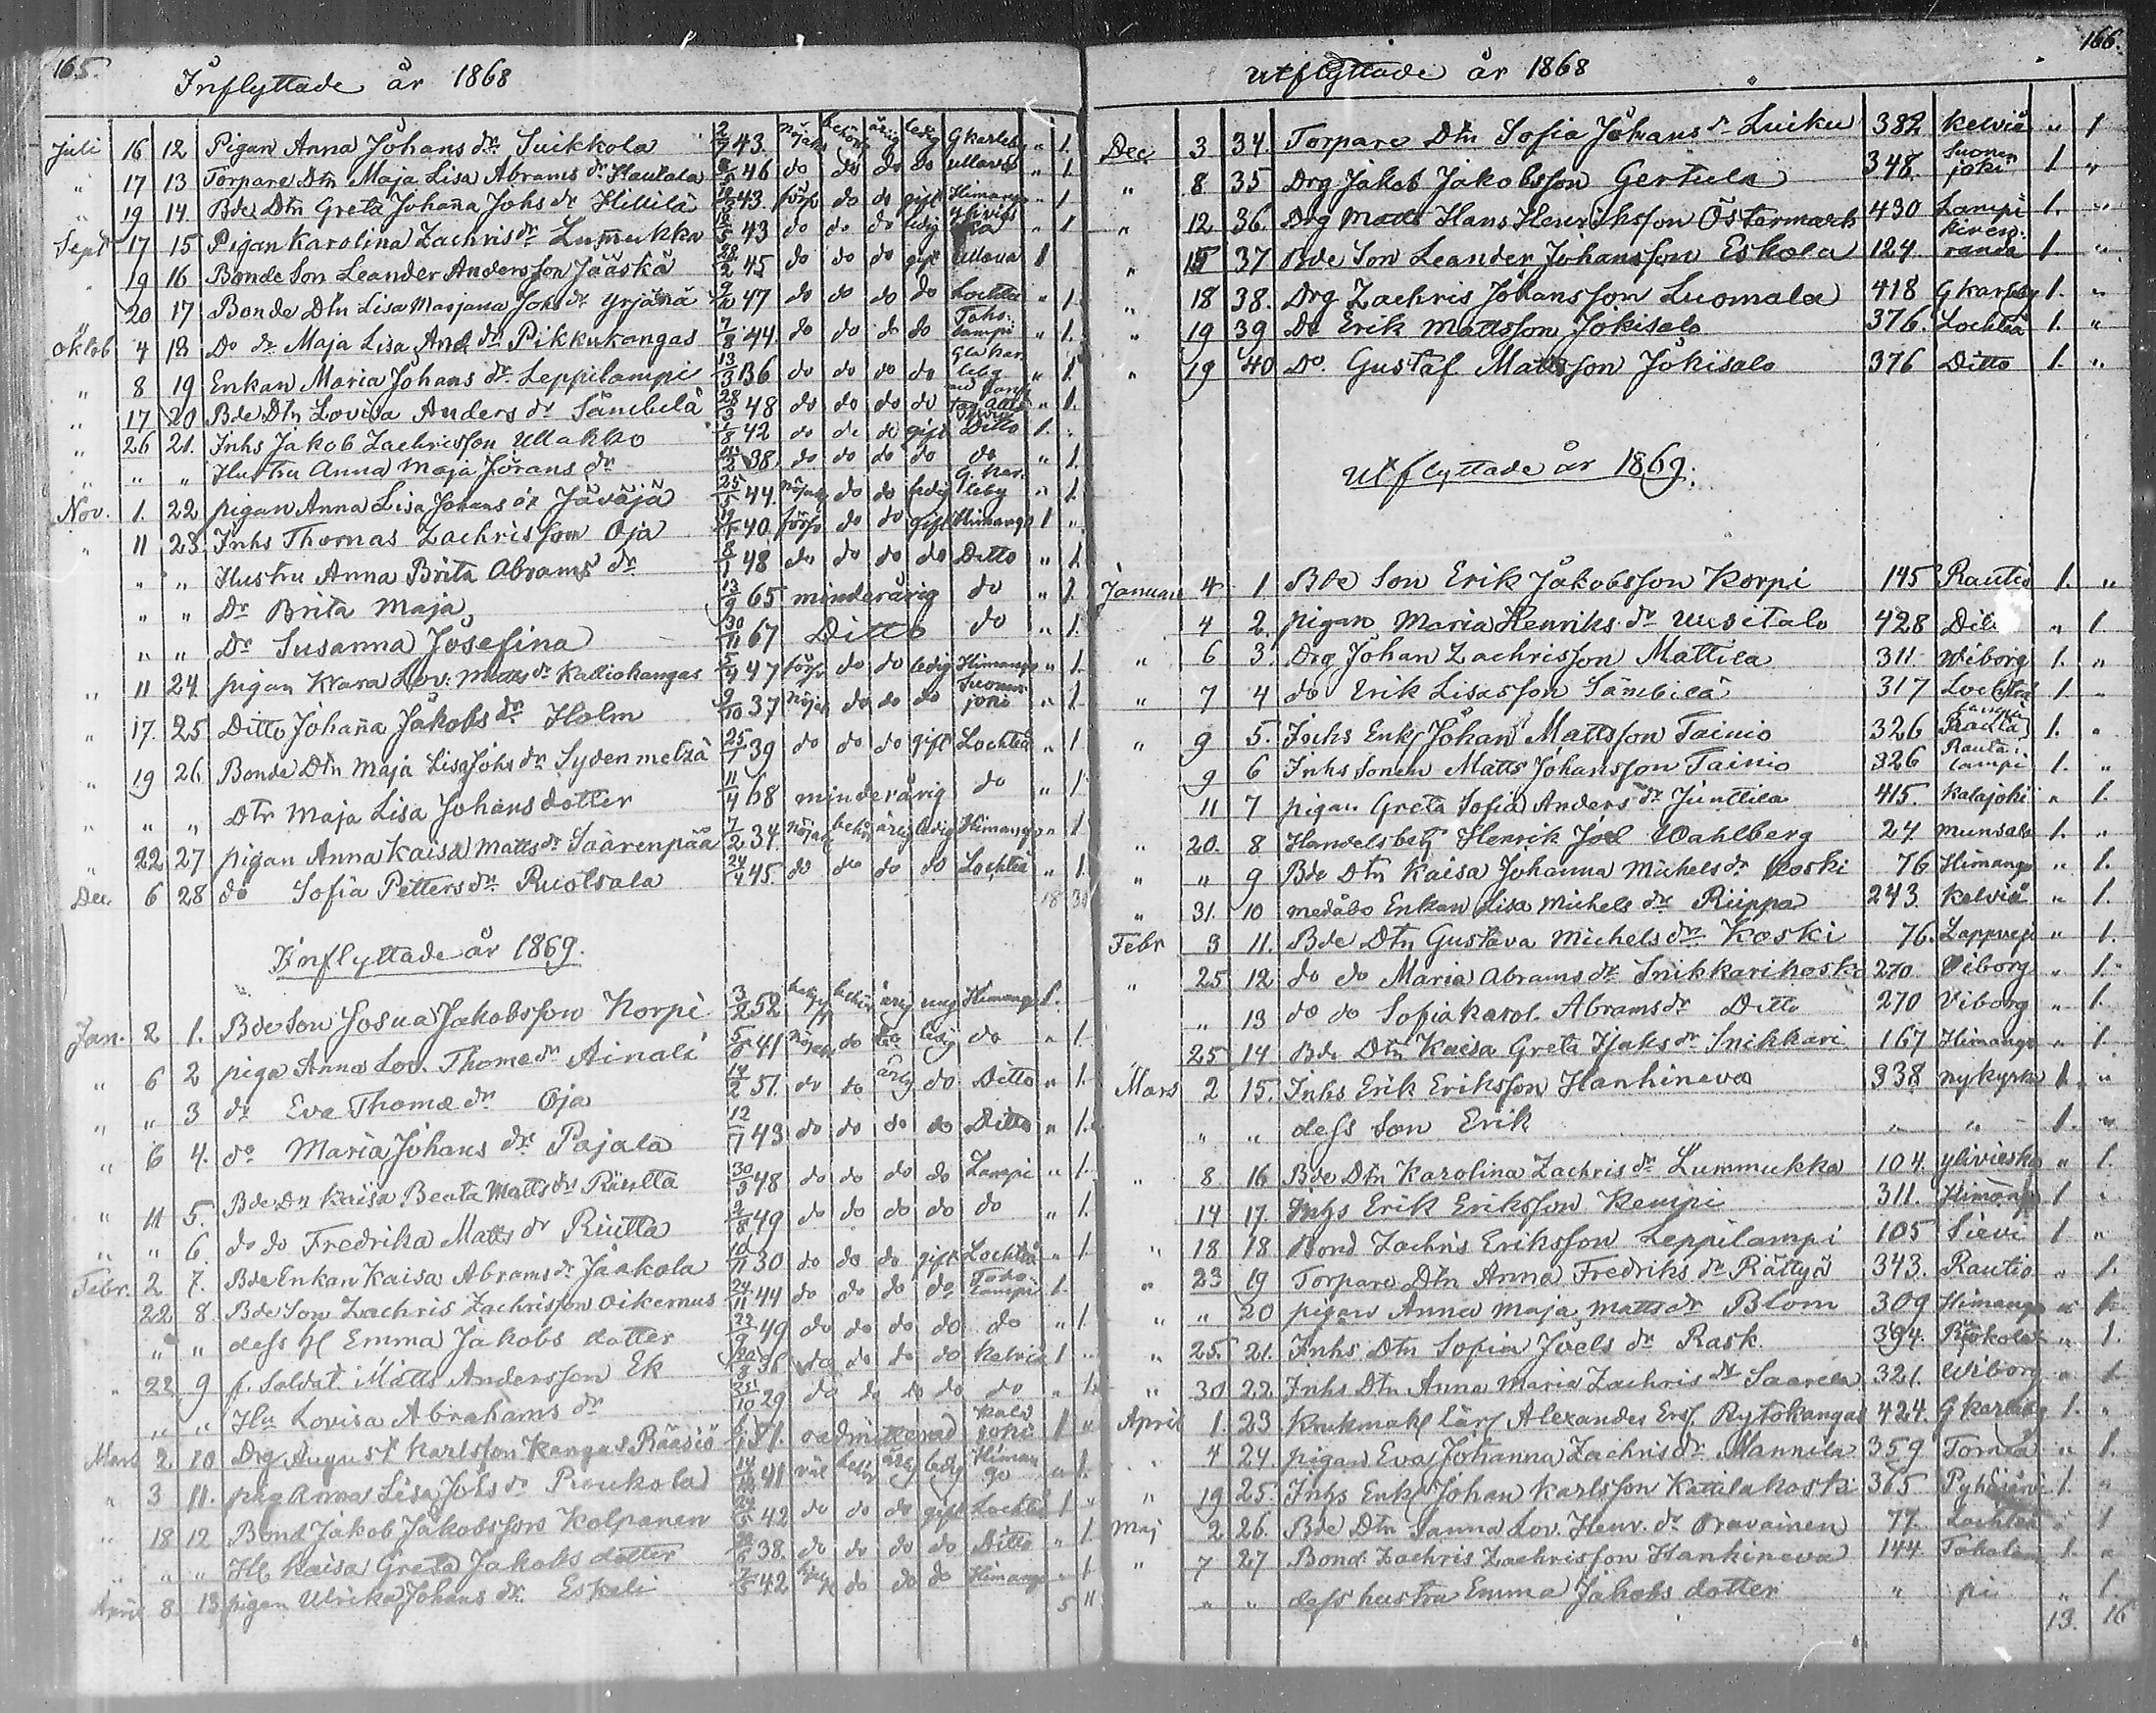 165.
Inflyttade år 1868
Juli 16 12 Pigan Anna Johans dr Suikkola 2/7 43. nöjakt behör. ärlig ledig Gkarleby " 1.
" 17 13 Torpare Dtn Maja Lisa Abrams dr Hautala 46 do do do do Ullava " 1.
" 19 14. Bde Dtn Greta Johaña Johs dr Hillilä 43. förs. do do gift Himango " 1
Sept 17 15 Pigan Karolina Zachris dr Lum̅ukka 43 do do do ledig " 1
" 19 16 Bonde Son Leander Andersson Jääskä 28/2 45 do do do gift Ullava 1
" 20 17 Bonde Dtn Lisa Marjana Johs dr Yrjänä 47 do do do do Lochteå " 1.
Oktob 4 18 Do dr Maja Lisa And. dr Pikkukangas 7/8 44. do do do do Toholampi " 1.
" 8 19 Enkan Maria Johans dr Leppilampi 13/3 36 do do do do Gla Karleby " 1.
" 17 20 Bde Dtn Lovisa Anders dr Sämbilä 28/3 48 do do do do " 1.
" 26 21. Inhs Jakob Zachrisson Ullakko 1/8 42 do do do gift Ditto 1. "
" " " Hustru Anna Maja Jörans dr 38. do do do do do " 1.
Nov. 1. 22 pigan Anna Lisa Johans dr Jäväjä 25/5 44. nöjakt do do ledig G Karleby " 1.
" 11 23. Inhs Thomas Zachrisson Oja 40. förs. do do gift Himango 1 "
" " Hustru Anna Brita Abrams dr 8/1 48 do do do do Ditto " 1.
" " Dr Brita Maja 13/9 65 minderårig do " 1.
" " Dr Susanna Josefina 30/11 67 Ditto do " 1.
" 11 24. pigan Klara Lov. Matts dr Kalliokangas 47 förs. do do ledig Himango " 1.
" 17. 25 Ditto Johaña Jakobs dr Holm 9/10 37 nöjakt do do do " 1
" 19 26. Bonde Dtn Maja Lisa Johs dr Sydenmetsä 25/7 39 do do do gift Lochteå " 1
" " " Dtr Maja Lisa Johansdotter 11/4 68 minderårig do " 1
" 22 27 pigan Anna Kaisa Matts dr Säärenpää 7/2 34. nöjakt behör. ärlig ledig Himango " 1
Dec. 6 28 do Sofia Petters dr Ruotsala 24/4 45. do do do do Lochteå " 1.
18 30
Inflyttade år 1869.
Jan. 2 1. Bde Son Josua Jakobsson Korpi 3/2 52. behör. ärlig ung Himango 1.
" 6 2 piga Anna Lov. Thome dr Ainali 41 nöjakt do do ledig do " 1.
" " 3 dr Eva Thomæ dr Oja 14/2 51. do do ärlig do Ditto " 1.
" 6 4. do Maria Johans dr Pajala 12/7 43 do do do do Ditto " 1.
" 11 5. Bde Dtr Kaisa Beata Matts dr Riutta 30/3 48 do do do do Lampi " 1.
" " 6 do do Fredrika Matts dr Riutta 2/8 49 do do do do do " 1.
Febr. 2 7. Bde Enkan Kaisa Abrams dr Jaakola 10/11 30 do do do gift Lochteå " 1
22 8. Bde Son Zachris Zachrisson Oikemus 24/11 44 do do do do Toholampi 1.
" " dess H Emma Jakobs dotter 22/9 49 do do do do do " 1
" 22 9 f. Soldat Matts Andersson Ek 20/8 36 do do do do Kelviå 1 "
" " Hu Lovisa Abrahams dr 25/10 29 do do do do do " 1.
Mars 2 10 Drg August Karlsson Kangas Rääsiö 51. oadmitterad Kalajoki 1 "
" 3 11. pig Anna Lisa Johs dr Pioukola 41 väl behör ärlig ledig Himango " 1.
" 18 12 Bond Jakob Jakobsson Kolpanen 42 do do do gift Lochteå 1 "
" " " H Kaisa Greta Jakobs dotter 38. do do do do Ditto " 1.
April 8. 13. pigan Ulrika Johans dr Eskeli 42 do do do Himango " 1
5 11
166.
Utflyttade år 1868
Dec. 3 34. Torpare Dtn Sofia Johans dr Luiku 382 Kelviå " 1
" 8 35 Drg Jakob Jakobsson Gertula 348. 1 "
" 12 36. Drg Matts Hans Henriksson Östermark 430 Lampi 1. "
" 15 37 Bde Son Leander Johansson Eskola 124. 1. "
" 18 38. Drg Zachris Johansson Luomala 418 G Karleby 1. "
" 19 39 Do Erik Mattsson Jokisalo 376. Lochteå 1. "
" 19 40 Do. Gustaf Mattsson Jokisalo 376 Ditto 1. "
Utflyttade år 1869.
Januari 4 1. Bde Son Erik Jakobsson Korpi 145 Rautio 1. "
4 2. pigan Maria Henriks dr Uusitalo 428 Ditto " 1
" 6 3. Drg Johan Zachrisson Mattila 311 Wiborg 1. "
" 7 4 do Erik Lisasson Sämbilä 317 Lochteå 1. "
" 9 5. Inhs Enkl Johan Mattsson Tainio 326 1. "
9 6 Inhs Sonen Matts Johansson Tainio 326 Rautalampi 1. "
11 7 pigan Greta Sofia Anders dr Junttila 415. Kalajoki " 1.
" 20. 8 Handelsbetj Henrik Joel Wahlberg 24 Munsala 1. "
" " 9 Bde Dtn Kaisa Johanna Michels dr Koski 76 Himango " 1.
" 31. 10 Enkan Lisa Michels dr Riippa 243. Kelviå " 1.
Febr 3 11. Bde Dtn Gustava Michels dr Koski 76. Lappveji " 1.
" 25 12 do do Maria Abrams dr Snikkarikoski 270. Viborg " 1.
" 13 do do Sofia Karol. Abrams dr Ditto 270 Viborg " 1.
25 14 Bde Dtn Kaisa Greta Isaks dr Snikkari 167 Himango " 1.
Mars 2 15. Inhs Erik Eriksson Hanhineva 338 Nykyrka 1. "
" " dess Son Erik " " 1. "
" 8 16 Bde Dtn Karolina Zachris dr Lummukka 104. Ylivieska " 1.
14 17. Inhs Erik Eriksson Kempi 311. Himango 1 "
" 18 18 Bond Zachris Eriksson Leppilampi 105 Sievi 1 "
" 23 19 Torpare Dtn Anna Fredriks dr Rättyä 343. Rautio " 1.
" " 20 pigan Anna Maja Matts dr Blom 309 Himango " 1
" 25. 21. Inhs Dtn Sofia Joels dr Rask 394. " 1.
" 30 22 Inhs Dtn Anna Maria Zachris dr Saarela 321. Wiborg " 1
April 1. 23 Krukmak lärl Alexander Ers. Rytökangas 424. G Karleby 1. "
" 4 24 pigan Eva Johanna Zachris dr Mannila 359 Torneå " 1.
" 19 25. Inhs Enkl Johan Karlsson Kattilakoski 365 Pyhäjärvi 1. "
Maj 2 26. Bde Dtn Sanna Lov. Henr. dr Oravainen 77. Lochteå " 1
" 7 27 Bond Zachris Zachrisson Hanhineva 144. Toholam 1. "
" " dess hustru Emma Jakobs dotter " pi " 1.
13. 16